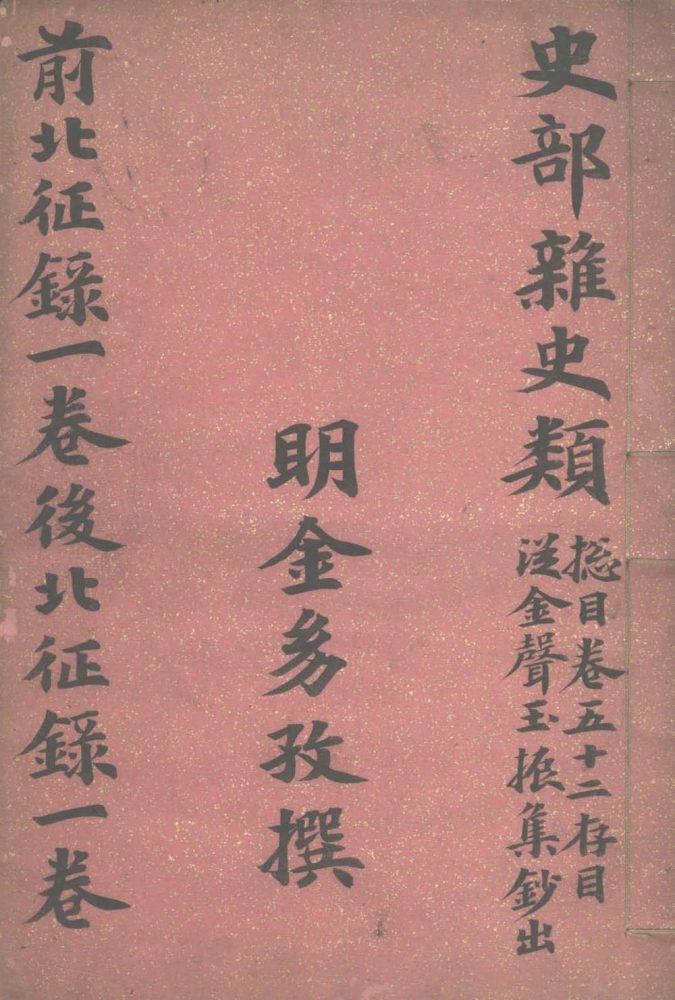 史部雜史類
摠目卷五十二存目
從金聲玉振集鈔出
明金幼孜撰
前北征錄一卷後北征錄一卷